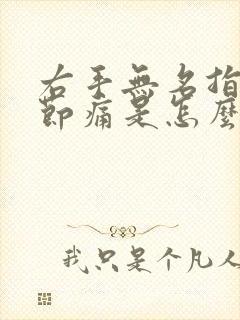 右手無名指
節痛是怎麼
我只是个凡人